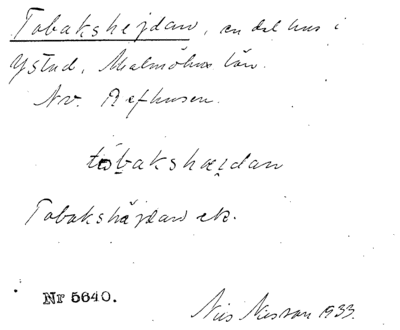 Tobakshejdan, en del hus i
Ystad, Malmöhus län.
Nv. Refhusen.
tobakshæjdan
Tobakshäjdan etc.
Nr 5640.
Nils Nilsson 1933.